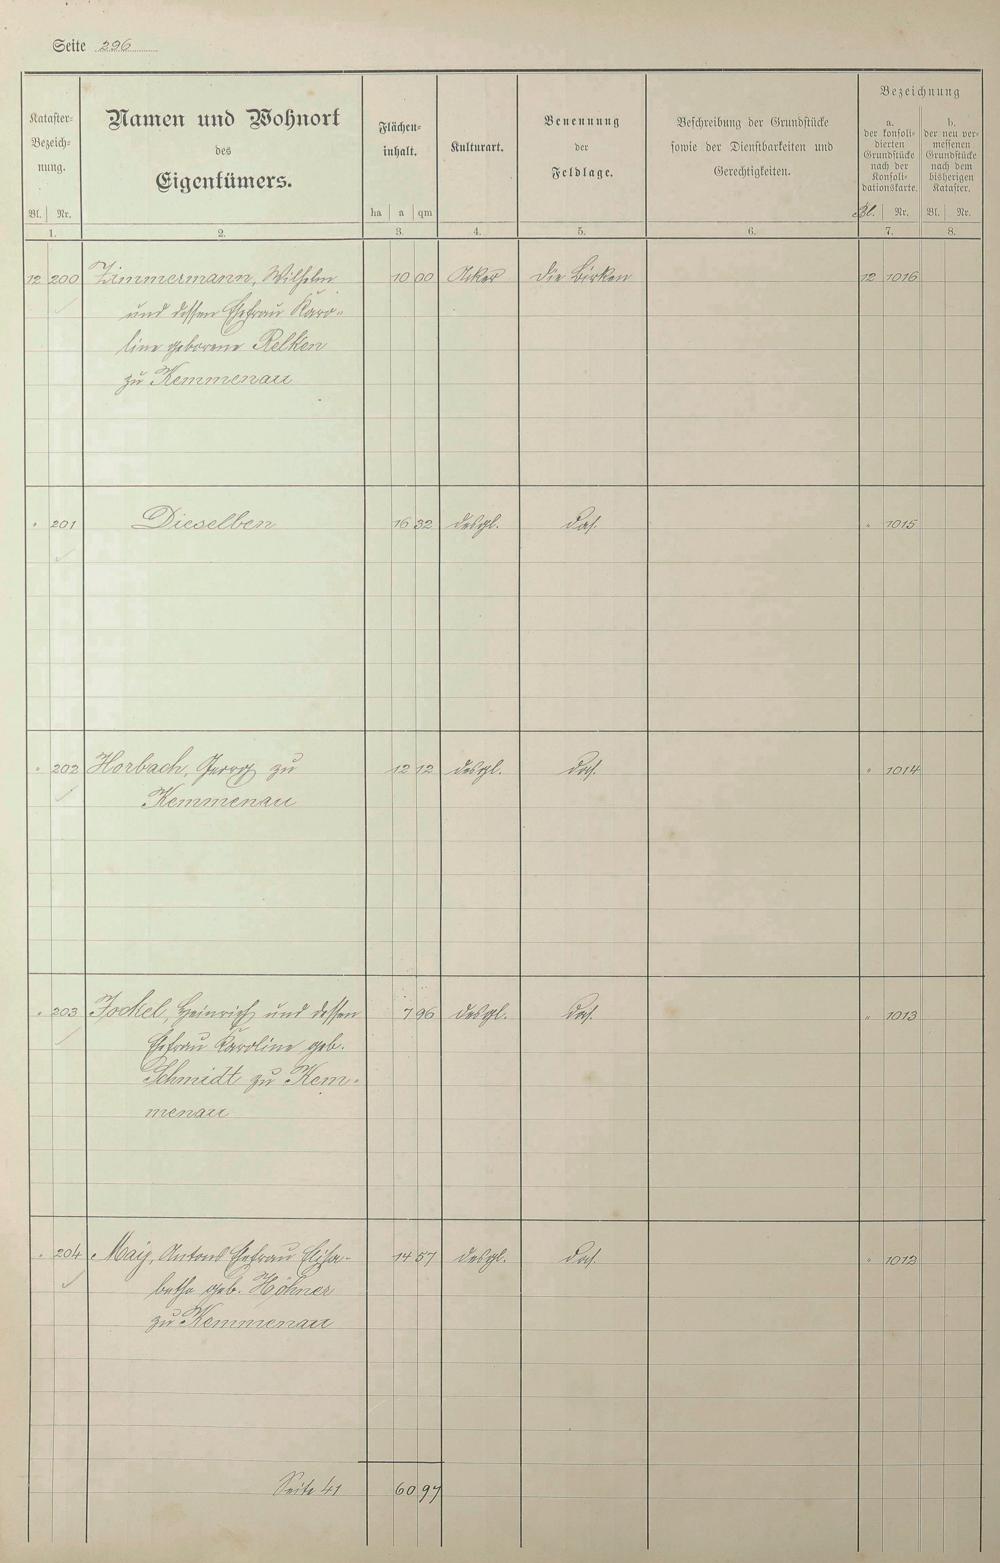 Seite 296
Kataster-
Bezeich-
nung.
Bl. Nr.
1.
Namen und Wohnort
des
Eigentümers.
2.
Flächen-
inhalt.
ha a qm
3.
Kulturart.
4.
Benennung
der
Feldlage.
5.
Beschreibung der Grundstücke
sowie der Dienstbarkeiten und
Gerechtigkeiten.
6.
Bezeichnung
a.
der konsoli-
dierten
Grundstücke
nach der
Konsoli-
dationskarte.
Bl. Nr.
7.
b.
der neu ver-
messenen
Grundstücke
nach dem
bisherigen
Kataster.
Bl. Nr.
8.
12 200 Zimmermann, Wilhelm 10 00 Acker die Birken 12 1016
und dessen Ehefrau Karo-
line geborene Relken
zu Kemmenau
" 201 Dieselben 16 32 desgl. das. " 1015
" 202 Horbach, Georg zu 12 12 desgl. das. " 1014
Kemmenau
" 203 Jockel, Heinrich und dessen 7 96 desgl. das. " 1013
Ehefrau Karoline geb.
Schmidt zu Kem-
menau
" 204 Maig, Antons Ehefrau Elisa- 14 57 desgl. das. " 1012
betha geb. Höhner
zu Kemmenau
Seite 41 60 97